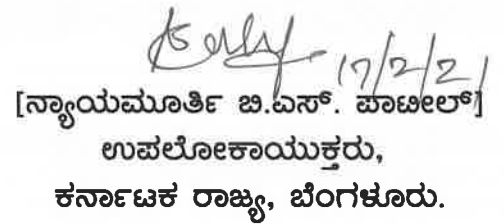 17/2/21
[ನ್ಯಾಯಮೂರ್ತಿ ಬಿ.ಎಸ್. ಪಾಟೀಲ್]
ಉಪಲೋಕಾಯುಕ್ತರು,
ಕರ್ನಾಟಕ ರಾಜ್ಯ, ಬೆಂಗಳೂರು.